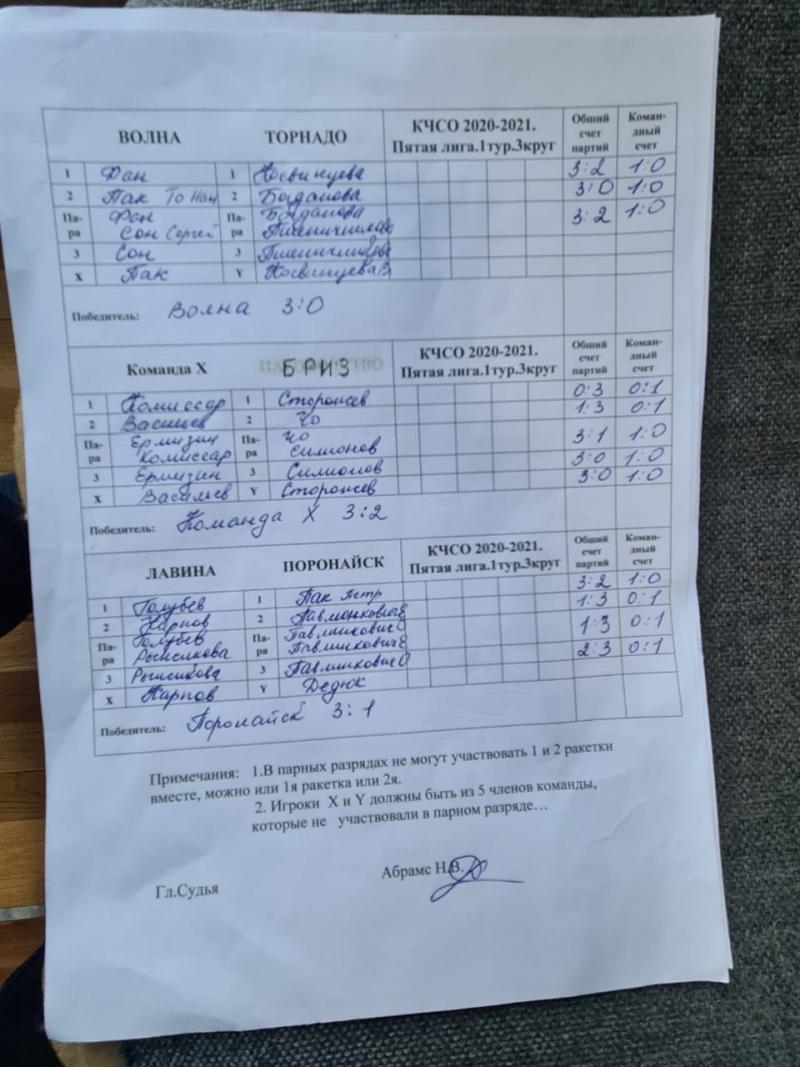 ВОЛНА ТОРНАДО КЧСО 2020-2021. Пятая лига.1тур.3круг Общий счет партий Коман-дный счет
1 Фан 1 3:2 1:0
2 Пак То Нам 2 Богданова 3:0 1:0
Па-ра Фан Па-ра Богданова 3:2 1:0
Сон Сергей
3 Сон 3
X Пак Y
Победитель: Волна 3:0
Команда X БРИЗ КЧСО 2020-2021. Пятая лига.1тур.3круг Общий счет партий Коман-дный счет
1 Комиссар 1 Сторожев 0:3 0:1
2 2 Чо 1:3 0:1
Па-ра Ермизин Па-ра Чо 3:1 1:0
Комиссар Симонов
3 Ермизин 3 Симонов 3:0 1:0
X Васильев Y Сторожев 3:0 1:0
Победитель: Команда X 3:2
ЛАВИНА ПОРОНАЙСК КЧСО 2020-2021. Пятая лига.1тур.3круг Общий счет партий Коман-дный счет
1 Голубев 1 Пак Петр 3:2 1:0
2 Карпов 2 1:3 0:1
Па-ра Голубев Па-ра 1:3 0:1
3 3 2:3 0:1
X Карпов Y Дедюк
Победитель: Поронайск 3:1
Примечания: 1.В парных разрядах не могут участвовать 1 и 2 ракетки
вместе, можно или 1я ракетка или 2я.
2. Игроки X и Y должны быть из 5 членов команды,
которые не участвовали в парном разряде…
Гл.Судья Абрамс Н.В.